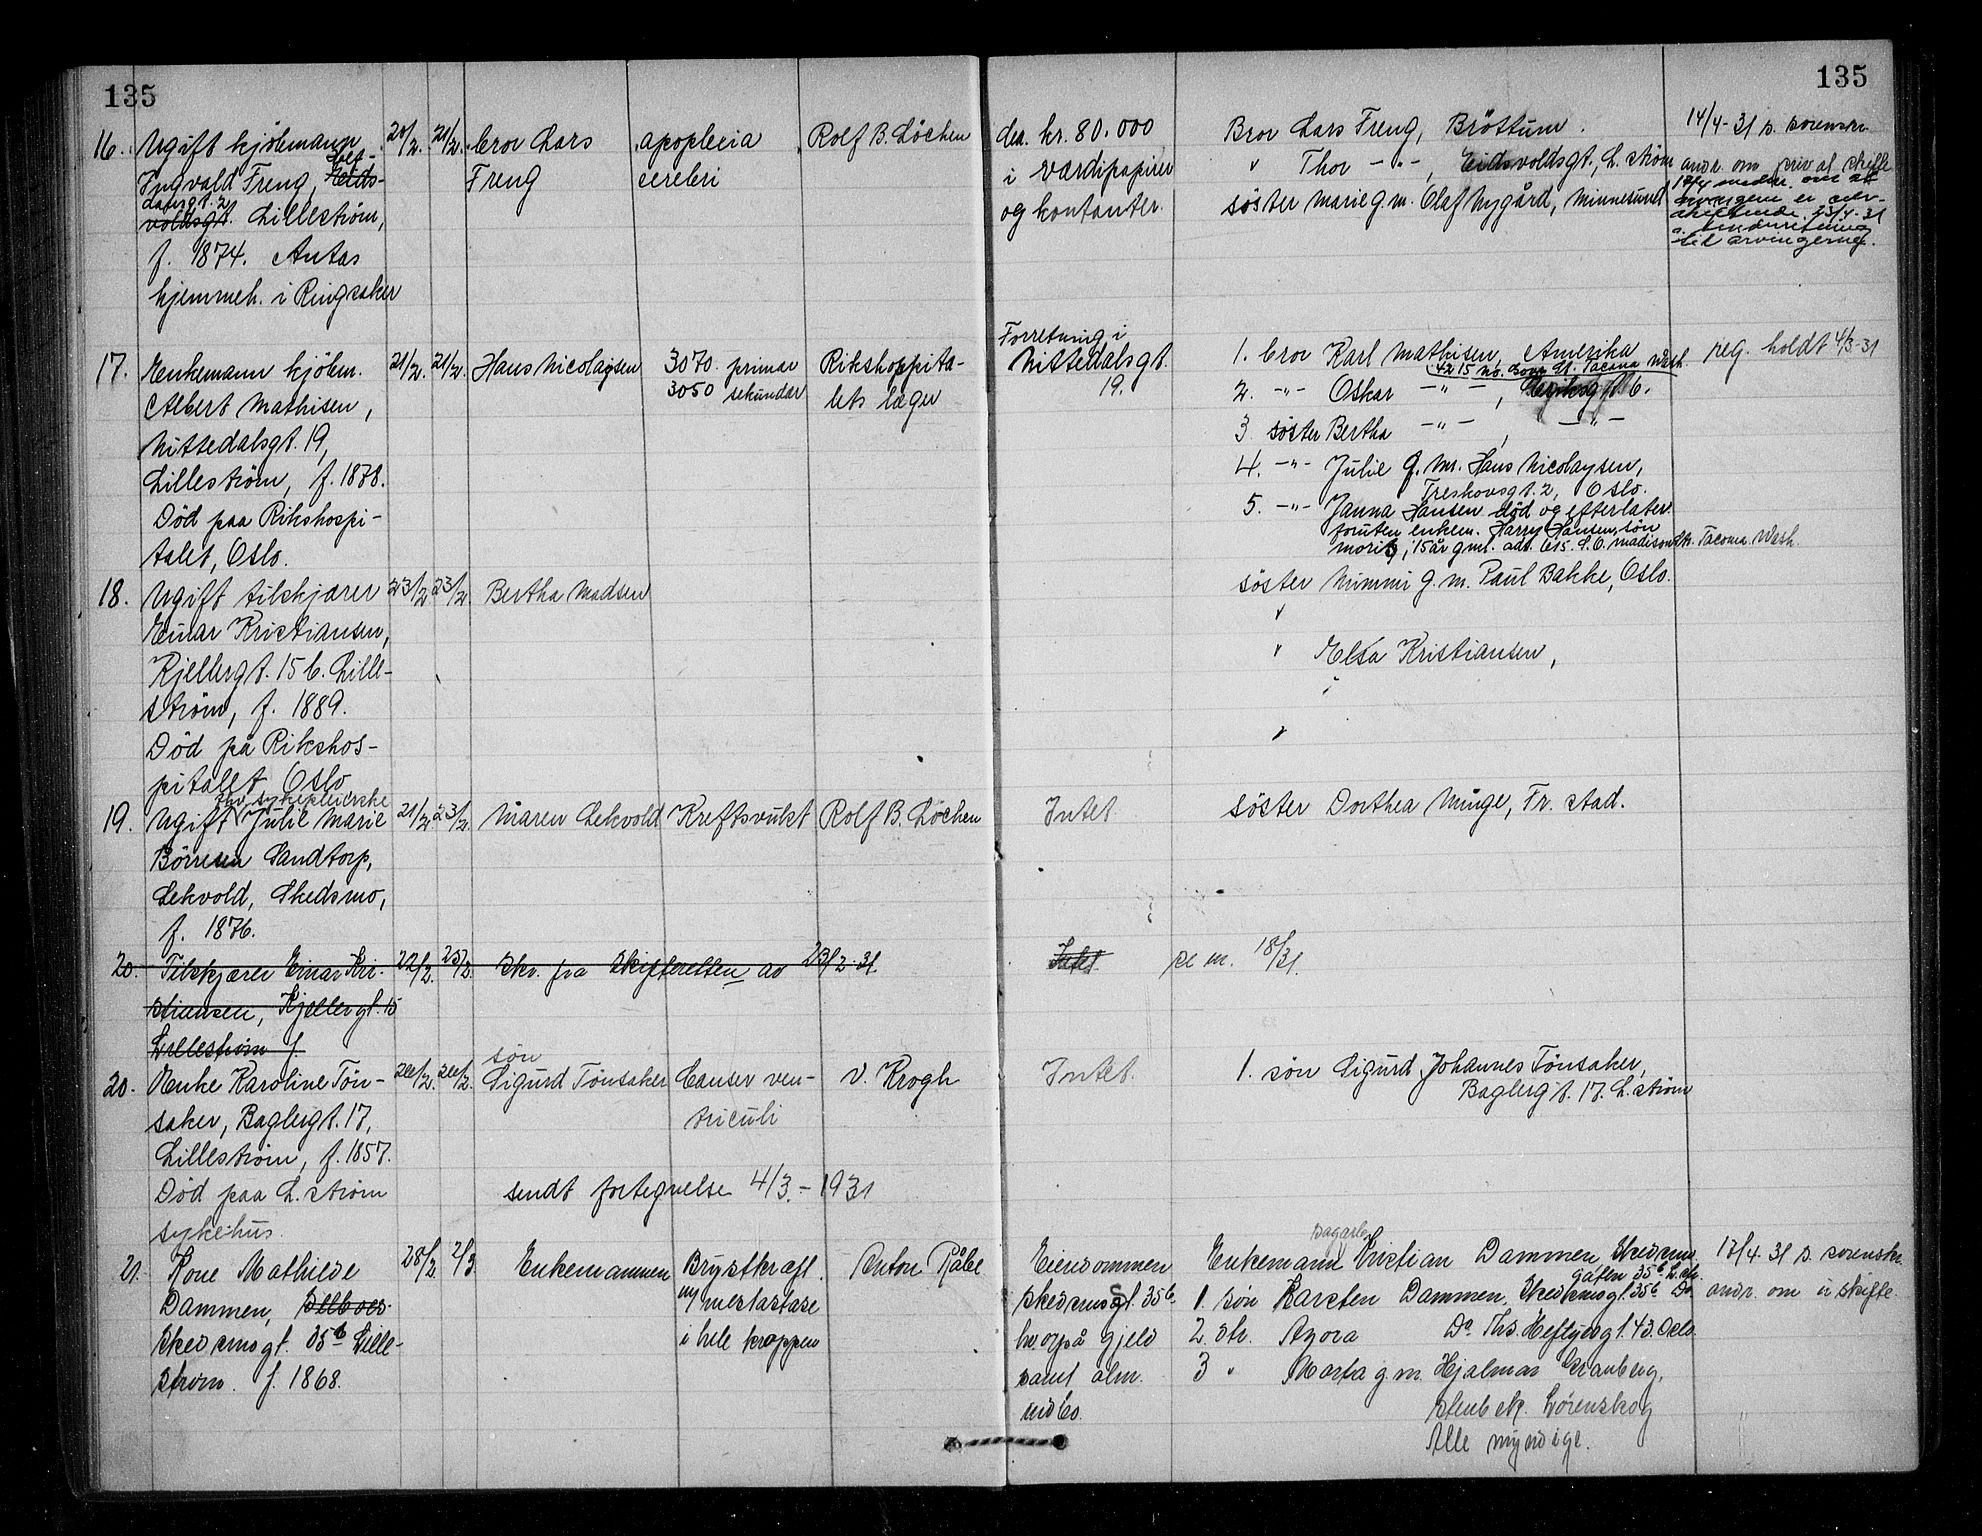 135
135
16. Ugift kjöbmann
Ingvald Freng, Eids-
voldsgt. Lillestrøm,
f. 1874. Antas
hjemmeh. i Ringsaker
21/2.
bror Lars
Freng
apoplexia
cerebri
Rolf B. Löchen
ca. kr. 80.000
i værdipapirer
og kontanter.
Bror Lars Freng, Bröttum.
" Thor -"-, Eidsvoldsgt, L. strøm
søster Marie g.m. Olaf Nygård, Minnesund
14/4-31 s. sorenskr.
andr. om privat skifte
til arvingerne.
17. Enkemann kjöbm.
Albert Mathisen,
Nittedalsgt. 19,
Lillestrøm, f. 1878.
Død paa Rikshospi-
talet, Oslo.
21/2. 21/2.
Hans Nicolaysen
3070. primær
3050 sekundær
Rikshospita-
lets læger
Forretning i
Nittedalsgt.
19.
1. bror Karl Mathisen, Amerika
2. -"- Oskar -"-
3 søster Bertha -"-, -"-
4. -"- Julie g. m. Hans Nicolaysen,
Treskowsgt. 2, Oslo.
5. -"- Janna Hansen død og efterlater
foruten enkem. Harry Hansen, søn
15 år gml. adr. 615. S. 6. Madison str. Tacoma Wash.
reg. holdt 4/3-31
18. Ugift tilskjærer
Einar Kristiansen,
Kjellergt. 15 b. Lille-
strøm, f. 1889.
Død på Rikshos-
pitalet Oslo
23/2 23/2
Bertha Madsen
søster Mimmi g. m. Paul Bakke, Oslo.
"
" Elsa Kristiansen,
"
19. fhv. sykepleierske
Ugift Julie Marie
Börresen Sandtorp,
Lekvold, Skedsmo,
f. 1876.
21/2 23/2.
Maren Lekvold
Kreftsvulst
Rolf B. Löchen
Intet
søster Dorthea Minge, Fr. stad.
20. Tilskjærer Einar Kri-
stiansen, Kjellergt. 15
Lillestrøm f.
22/2. 25/2.
skr. fra skifteretten av 23/2-31.
Intet.
se nr. 18/31.
20. Enke Karoline Tön-
saker, Baglergt. 17,
Lillestrøm, f. 1857.
Død paa L. strøm
sykehus.
26/2. 26/2.
søn
Sigurd Tönsaker
Cancer ven-
triculi
v. Krogh
sendt fortegnelse 4/3.-1931
Intet.
1. søn Sigurd Johannes Tönsaker,
Baglergt. 17. L. strøm
21. Kone Mathilde
Dammen,
Skedsmogt. 35b Lille-
strøm. f. 1868.
28/2. 2/3
Enkemannen
Brystkræft.
m/ metastase
i hele kroppen
Anton Råbe
Eiendommen
Skedsmogt. 35b
hvorpå gjeld
samt alm.
indbo.
Enkemann Kristian Dammen Skedsmo
gaten 35b L. str.
1. søn Karsten Dammen, Skedsmogt. 35b Do
2. dtr. Agora Do Ths. Heftyesgt. 43. Oslo.
3 " Marta g.m. Hjalmar Granberg,
Lørenskog
Alle myndige.
17/4-31 s. sorenskr.
andr. om u. skifte